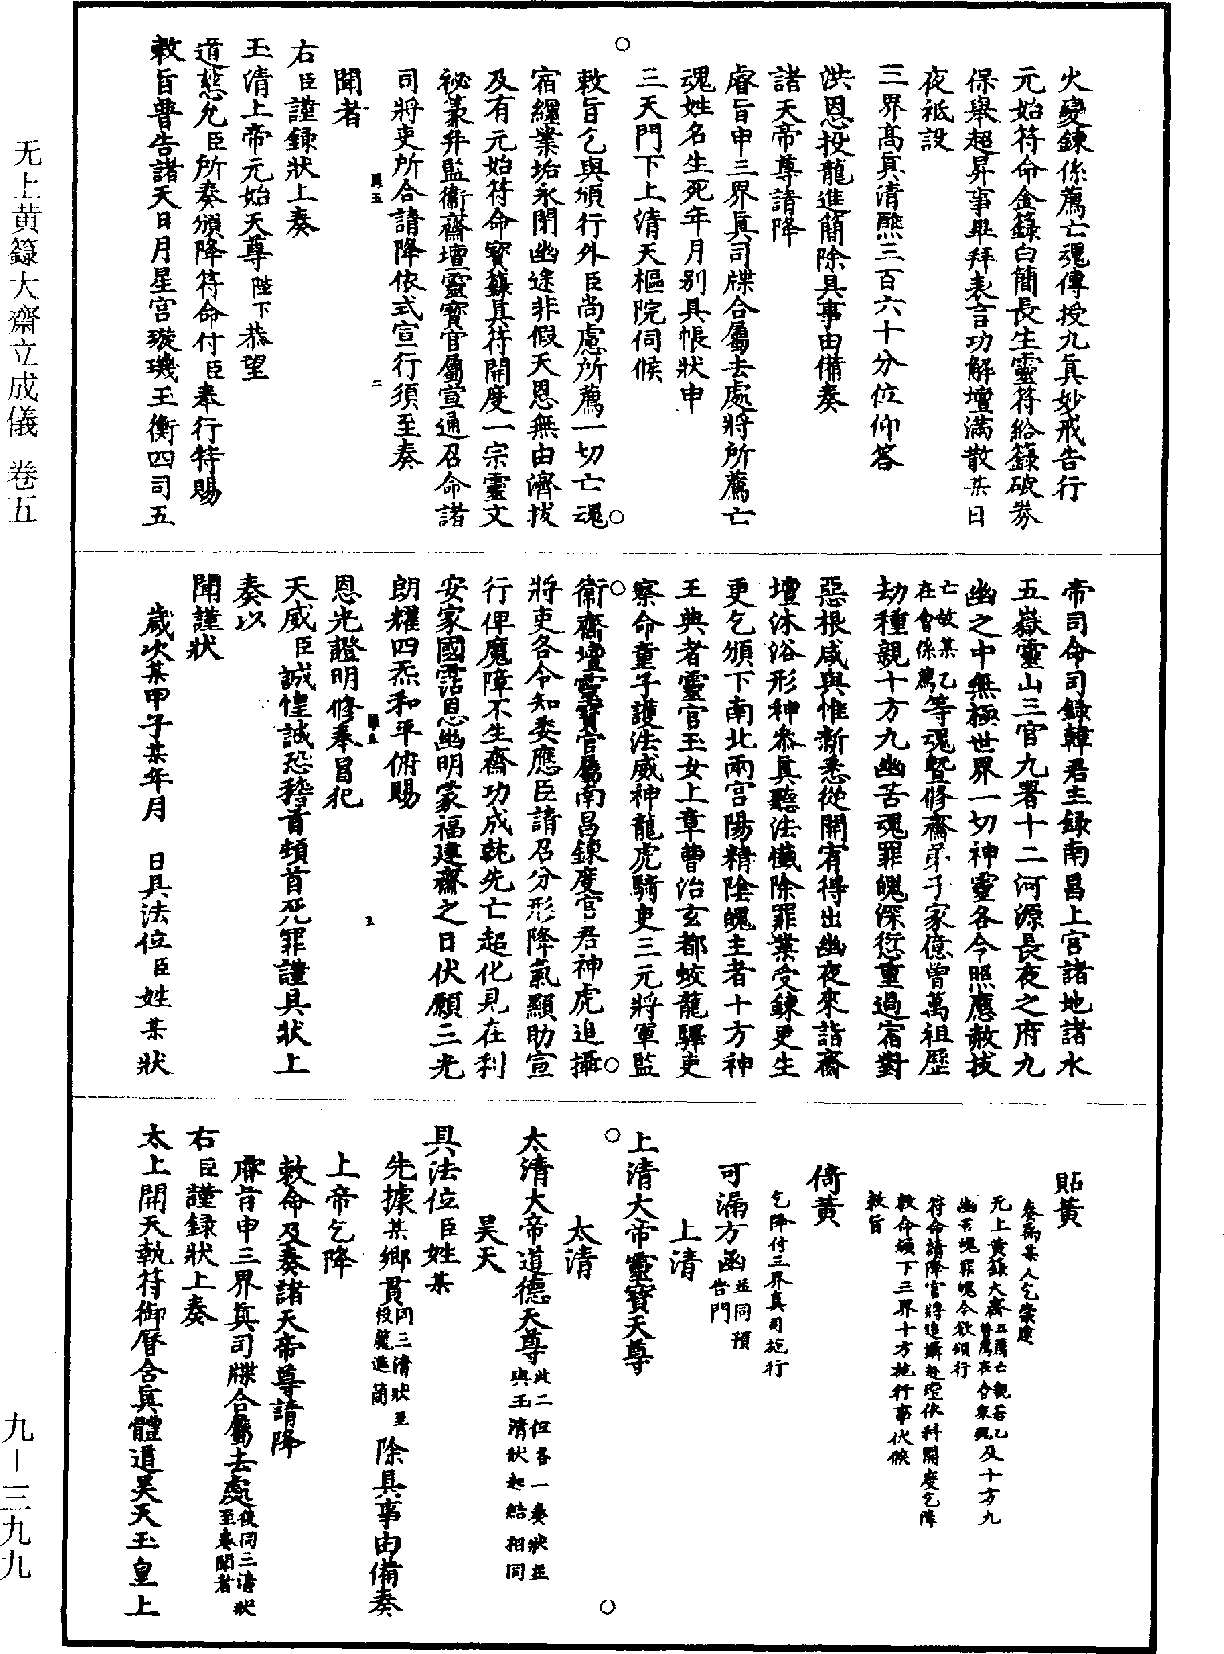 火變鍊係薦亡魂傳授九真妙戒告行
元始符命金籙白簡長生靈符給籙破券
保舉超昇事畢拜表言功解壇滿散某日
夜祗設
三界高真清醮三百六十分位仰答
洪恩投龍進簡除具事由備奏
諸天帝尊請降
睿旨申三界真司牒合屬去處將所薦亡
魂姓名生死年月别具帳狀申
三天門下上清天樞院伺候
敕旨乞與頒行外臣尚慮所薦一切亡魂
宿纏業垢永閉幽途非假天恩無由濟拔
及有元始符命寶籙真符開度一宗靈文
祕篆并監衛齋壇靈寶官屬宣通召命諸
司將吏所合請降依式宣行須至奏
聞者
右臣謹錄狀上奏
玉清上帝元始天尊陛下恭望
道慈允臣所奏頒降符命付臣奉行特賜
敕旨普告諸天日月星宮璇璣玉衡四司五
帝司命司錄韓君主錄南昌上宮諸地諸水
五嶽靈山三官九署十二河源長夜之府九
幽之中無極世界一切神靈各令照應赦拔
亡故某乙等魂暨修齋弟子家億曾萬祖歷
在會係薦
劫種親十方九幽苦魂罪魄深愆重過宿對
惡根咸與惟新悉從開宥得出幽夜來詣齋
壇沐浴形神參真聽法懺除罪業受鍊更生
更乞頒下南北兩宮陽精陰魄主者十方神
王典者靈官玉女上章曹治玄都蛟龍驛吏
察命童子護法威神龍虎騎吏三元將軍監
衛齋壇靈寶官屬南昌鍊度官君神虎追攝
將吏各令知委應臣請召分形降氣顯助宣
行俾魔障不生齋功成就先亡超化見在利
安家國霑恩幽明蒙福建齋之日伏願三光
朗耀四炁和平俯賜
恩光證明修奉冒犯
天威臣誠惶誠恐稽首頓首死罪謹具狀上
奏以
聞謹狀
歲次某甲子某年月　日具法位臣姓某狀
貼黃
奏為某人乞崇建
无上黃籙大齋五晝夜薦亡親若乙及十方九
幽苦魂罪魄令欲頒行
符命請降官將追攝赴壇依科開度乞降
敕命頒下三界十方施行事伏候
敕旨
倚黃
乞降付三界真司施行
可漏方函並同預告門
上清
上清大帝靈寶天尊
太清
太清大帝道德天尊此二位各一奏狀並與玉清狀起結相同
昊天
具法位臣姓某
先據某鄉貫同三清狀至投龍進簡除具事由備奏
上帝乞降
敕命及奏諸天帝尊請降
睿旨申三界真司牒合屬去處後同三清狀至奏聞者
右臣謹錄狀上奏
太上開天執符御曆含真體道昊天玉皇上
无上黄籙大齋立成儀　卷五
九—三九九